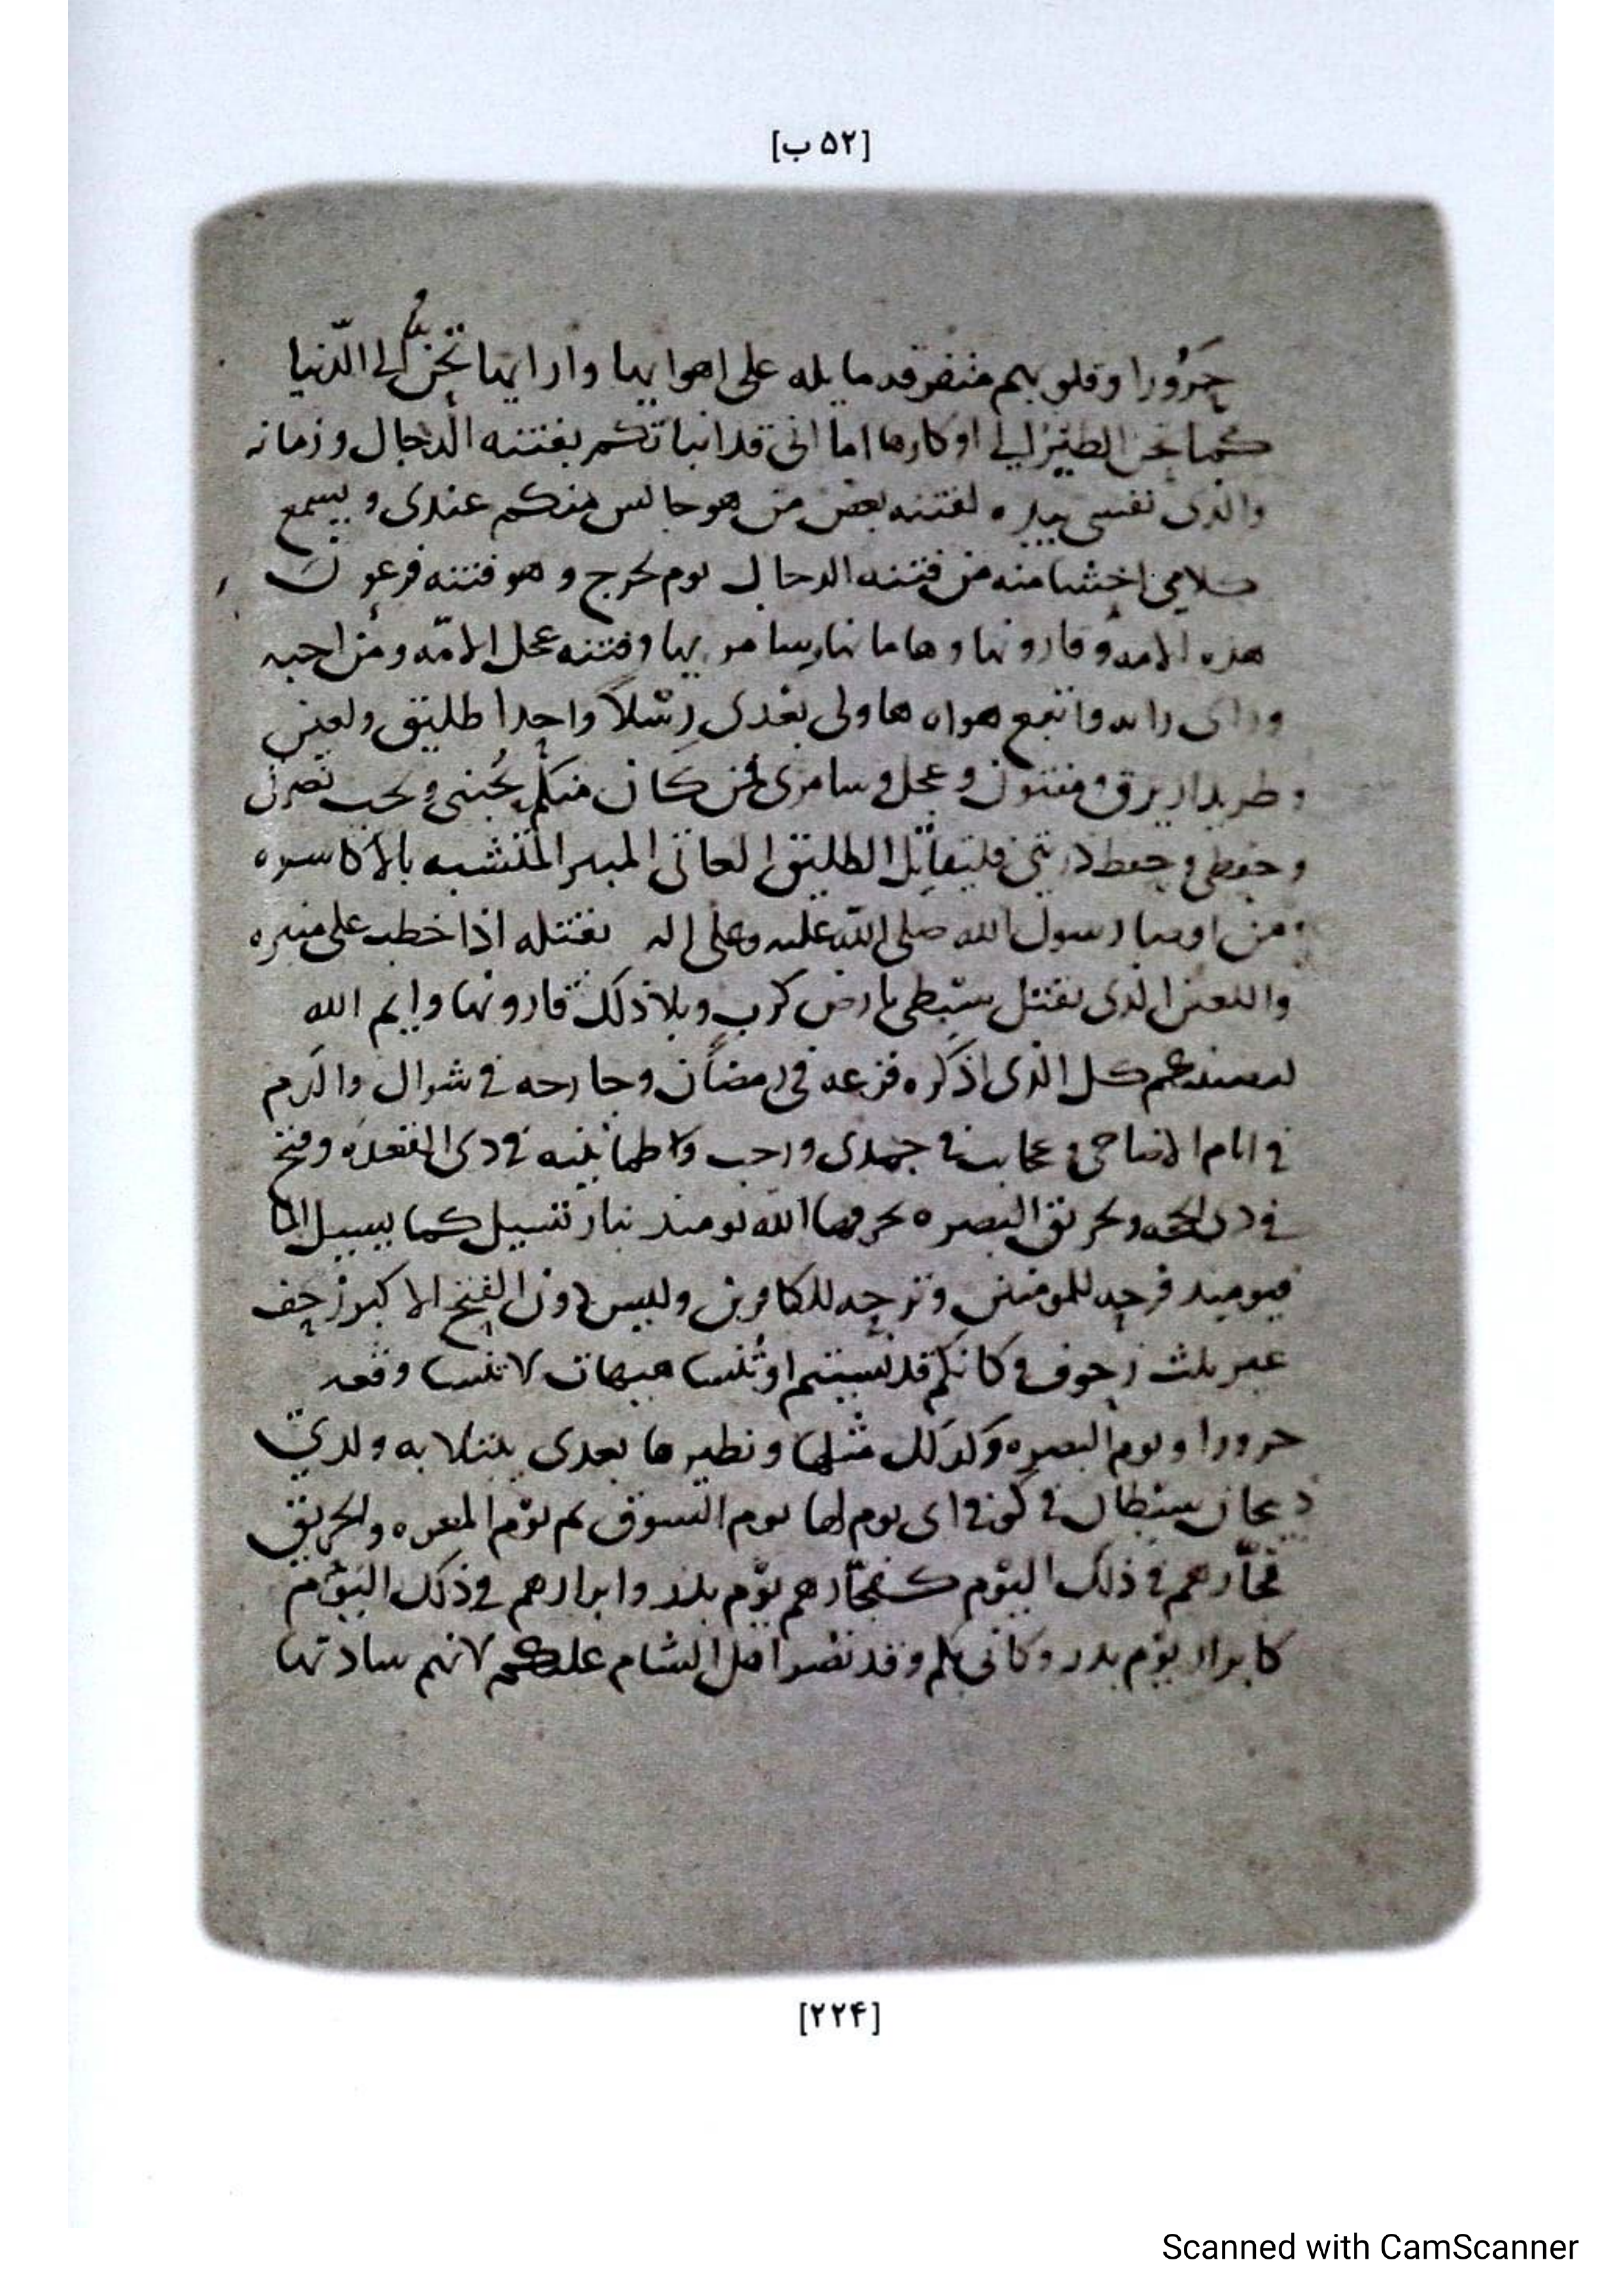 [۵۲ ب]
حَرُورا وقلوبهم متفرقه مايله على اهوايها وارايها تحن الى الدّنيا
كما تحن الطير الى اوكارها اما انى قد انباتكم بفتنه الدجال وزمانه
والذى نفسى بيده لفتنه بعض من هو جالس منكم عندى ويسمع
كلامى اخشا منه من فتنه الدجال يوم يخرج وهو فتنه فرعون
هذه الامه وقارونها وهامانها وسامريها وفتنه عجل الامّه ومن احبه
وراى رايه واتبع هواه هاولى بعدى رسْلاً واحدا طليق ولعين
وطريد ازيرق ومفتون وعجل وسامرى فمن كان منكم يُحبنى ويحب نصرتى
وحفظى وحفظ ذريتى فليقاتل الطليق العاتى المتشبه بالاكاسره
من اوصيا رسول الله صلى الله عليه وعلى اله يقتله اذا خطب على منبره
واللعين الذى يقتل سبطى بارض كرب وبلا ذلك قارونها وايم الله
كل الذى اذكره فزعه فى رمضان وفى شوال والدم
فى ايام الاضاحى وعجايب فى جمدى ورجب وطمانينه فى ذى القعده وفتح
فى ذى الحجه وتحريق البصره يحرقها الله يوميذ بنار تسيل كما يسيل الما
فيوميذ فرجه للمومنين وترحه للكافرين وليس دون الفتح الاكبر زحف
غير ثلث زحوف وكانكم قد نسيتم او تنسا هيهات لا تنسا وقعه
حرورا ويوم البصره وكذلك مثلها ونظيرها بعدى يبتلا به ولدىّ
ريحانى سبطاى فى كوفى اى يوم لها يوم السوق ثم يوم والحريق
فجّارهم فى ذلك اليوم كفجّارهم يوم بدر وابرارهم فى ذلك اليوم
كابرار يوم بدر وكانى بكم وقد نصر اهل الشام عليكم لانهم سادتها
[۲۲۴]
Scanned with CamScanner